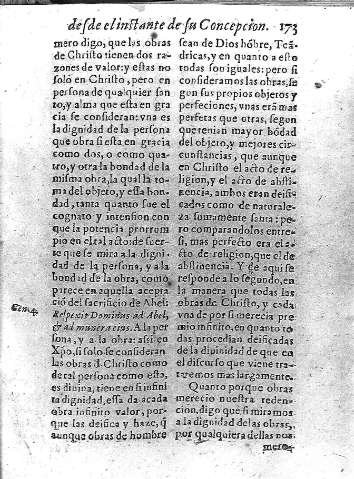 desde el instante de su Concepcion. 173
mero digo, que las obras
de Christo tienen dos ra-
zones de valor: y estas no
solo en Christo, pero en
persona de qualquier san
to, y alma que esta en gra-
cia se consideran: vna es
la dignidad de la persona
que obra si esta en gracia
como dos, o como qua-
tro, y otra la bondad de la
misma obra, la qual la to-
ma del objeto, y essa bon-
dad, tanta quanto fue el
cognato y intension con
que la potencia prorrum
pio en el tal acto: de suer-
te que se mira a la digni-
dad de la persona, y a la
bondad de la obra, como
parece en aquella accepta
ciõ del sacrificio de Abel:
Gene. 4. Respexit Dominus ad Abel,
& ad munera eius. A la per
sona, y a la obra: assi en
Xpo, si solo se consideran
las obras d Christo como
de tal persona como esta,
es diuina, tiene en si infini
ta dignidad, essa da a cada
obra infinito valor, por-
que las deifica y haze, q̃
aunque obras de hombre
sean de Dios hõbre, Teã-
dricas, y en quanto a esto
todas son iguales: pero si
consideramos las obras, se
gon sus propios objetos y
perfeciones, vnas erã mas
perfetas que otras, segon
que tenian mayor bõdad
del objeto, y mejores cir-
cunstancias, que aunque
en Christo el acto de re-
ligion, y el acto de absti-
nencia, ambos eran deifi
cados como de naturale-
za sumamente santa: pe-
ro comparandolos entre
si, mas perfecto era el ac-
to de religion, que el de
abstinencia. Y de aqui se
responde a lo segundo, en
la manera que todas las
obras de Christo, y cada
vna de por si merecia pre
mio infinito, en quanto to
das procedian deificadas
de la diuinidad de que en
el discurso que viene tra-
taremos mas largamente.
Quanto porque obras
merecio nuestra reden-
cion, digo que si miramos
a la dignidad de las obras,
por qualquiera dellas nos
mere-